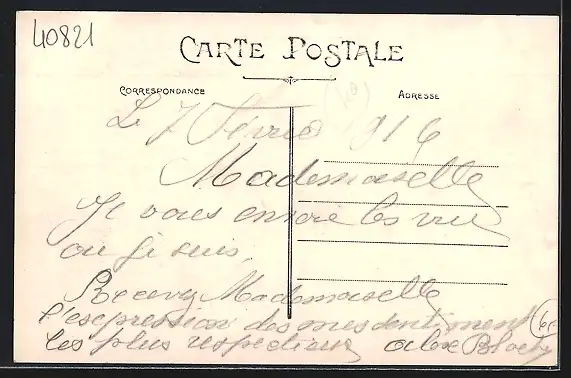 40821
CARTE POSTALE
CORRESPONDANCE
ADRESSE
Le 7 Février 1916
Mademoiselle
Je vous envoie les vue
ou je suis.
Recevez Mademoiselle
l'esepression des mes sentiment
les plus respectieux